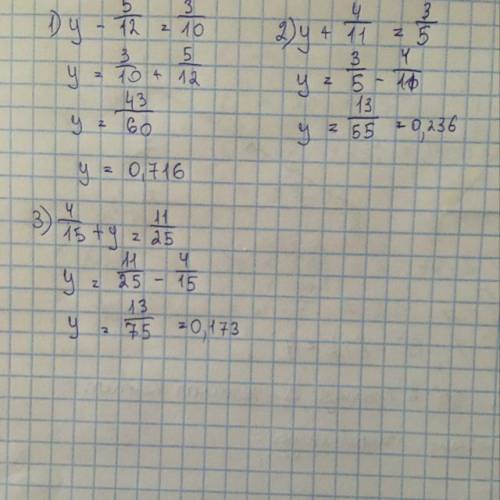 1) y - 5/12 = 3/10
y = 3/10 + 5/12
y = 43/60
y = 0,716
2) y + 4/11 = 3/5
y = 3/5 - 4/11
y = 13/55 = 0,236
3) 4/15 + y = 11/25
y = 11/25 - 4/15
y = 13/75 = 0,173